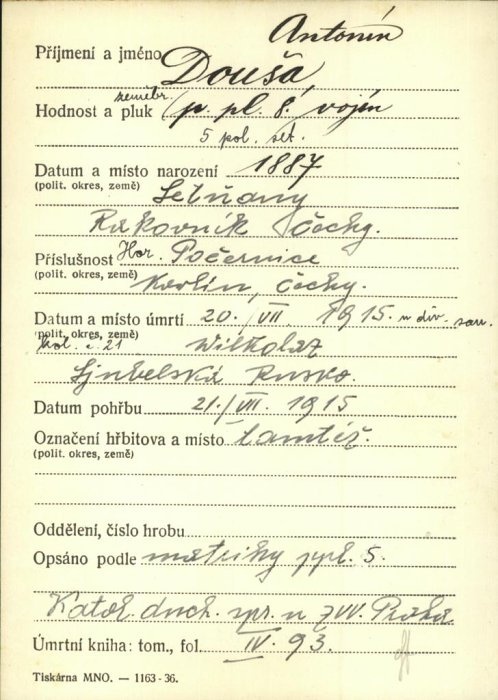 Antonín
Příjmení a jméno Douša
zeměbr.
Hodnost a pluk p. pl. 8. / vojín
5 pol. set.
Datum a místo narození 1887
(polit. okres, země) Letňany
Rakovník Čechy.
Příslušnost Hor. Počernice
(polit. okres, země) Karlín, Čechy.
Datum a místo úmrtí 20./VII 1915. u div. san.
(polit. okres, země)
kol. č. 21 Wilkolaz
Ljubelská Rusko.
Datum pohřbu 21./VII. 1915
Označení hřbitova a místo tamtéž.
(polit. okres, země)
Oddělení, číslo hrobu
Opsáno podle matriky ppl. 5.
Katol. duch. spr. u ZVV. Praha
Úmrtní kniha: tom., fol. IV. 93.
Tiskárna MNO. — 1163-36.